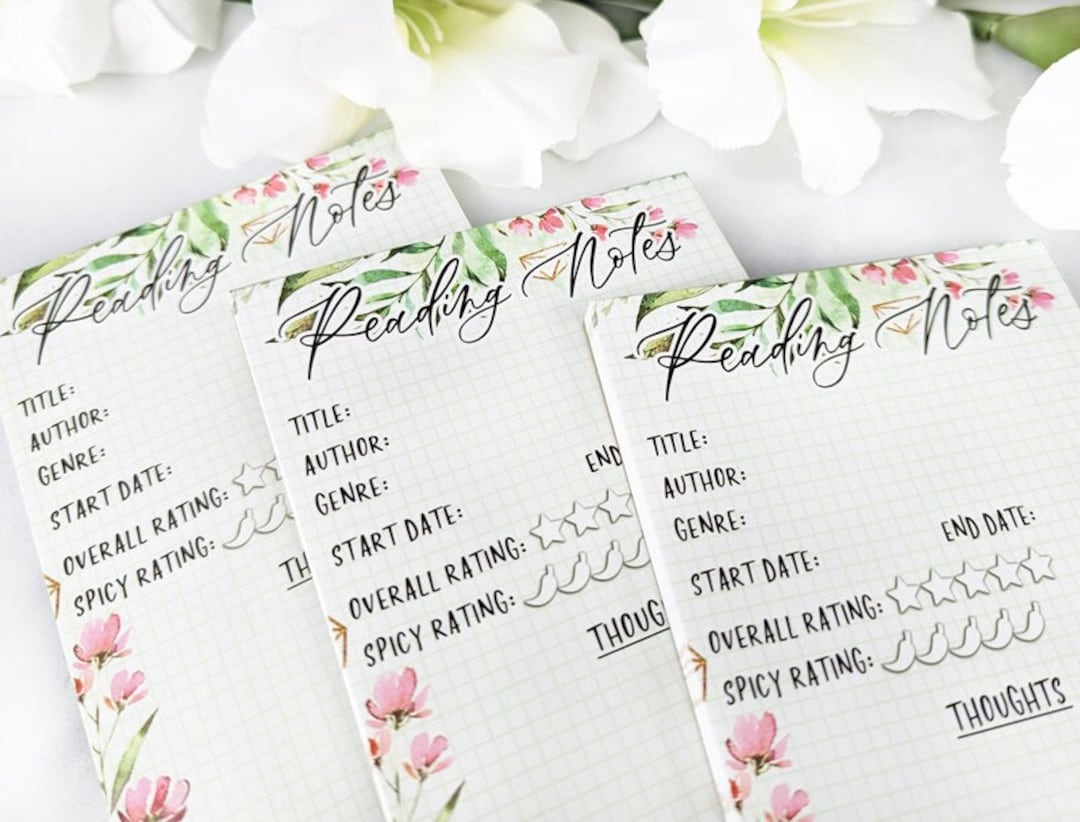 Reading Notes
TITLE:
AUTHOR:
GENRE:
START DATE:
OVERALL RATING:
SPICY RATING:
TH
Reading Notes
TITLE:
AUTHOR:
GENRE:
END
START DATE:
OVERALL RATING:
SPICY RATING:
THOUG
Reading Notes
TITLE:
AUTHOR:
GENRE:
END DATE:
START DATE:
OVERALL RATING:
SPICY RATING:
THOUGHTS